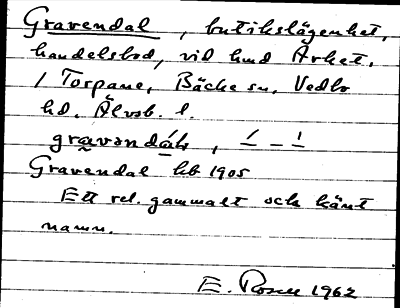 Gravendal, butikslägenhet,
handelsbod, vid hmd Årket.
i Torpane, Bäcke sn, Vedbo
hd. Älvsb. l.
gravəndáls, ⸌ – –́
Gravendal kb 1905
Ett rel. gammalt och känt
namn.
E. Rosell 1962